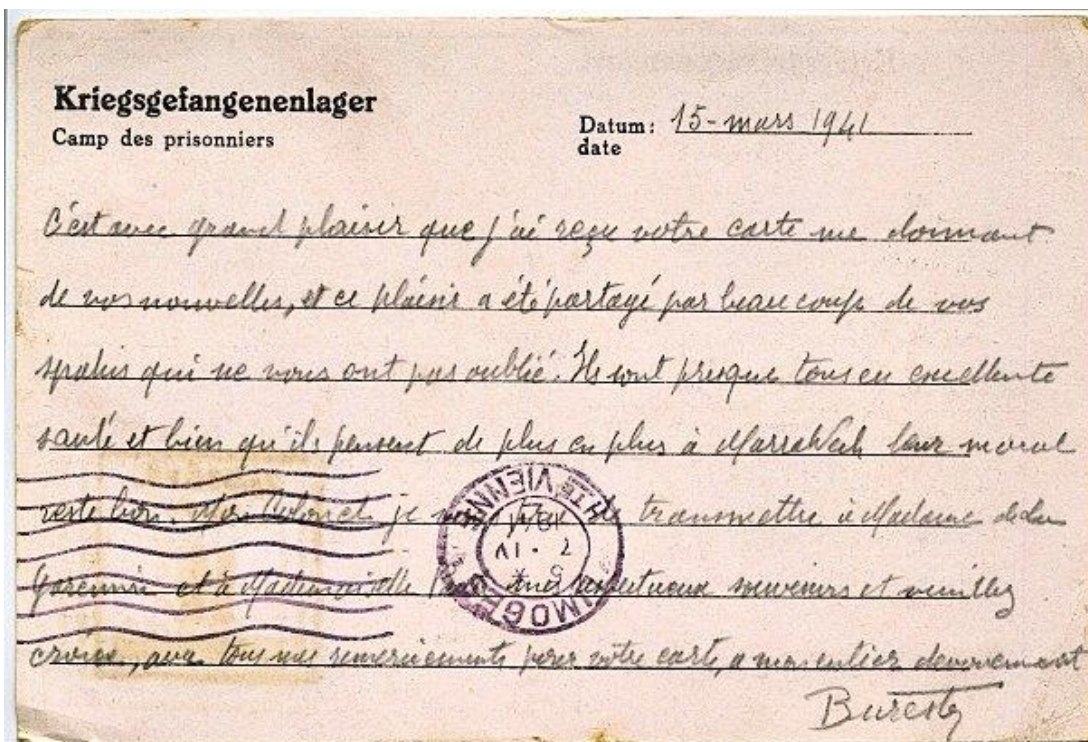 Kriegsgefangenenlager
Camp des prisonniers
Datum: 15-mars 1941
date
C'est avec grand plaisir que j'ai reçu votre carte me donnant
de vos nouvelles, et ce plaisir a été partagé par beaucoup de vos
spahis qui ne vous ont pas oublié. Ils sont presque tous en excellente
santé et bien qu'ils pensent de plus en plus à Marrakech leur moral
reste bon. Mon Colonel je de transmettre à Madame de la
et à Mademoiselle mes respectueux souvenirs et veuillez
croire, avec tous mes remerciements pour votre carte, a mon entier dévouement
LIMOGES
HTE VIENNE
7 · IV
1941